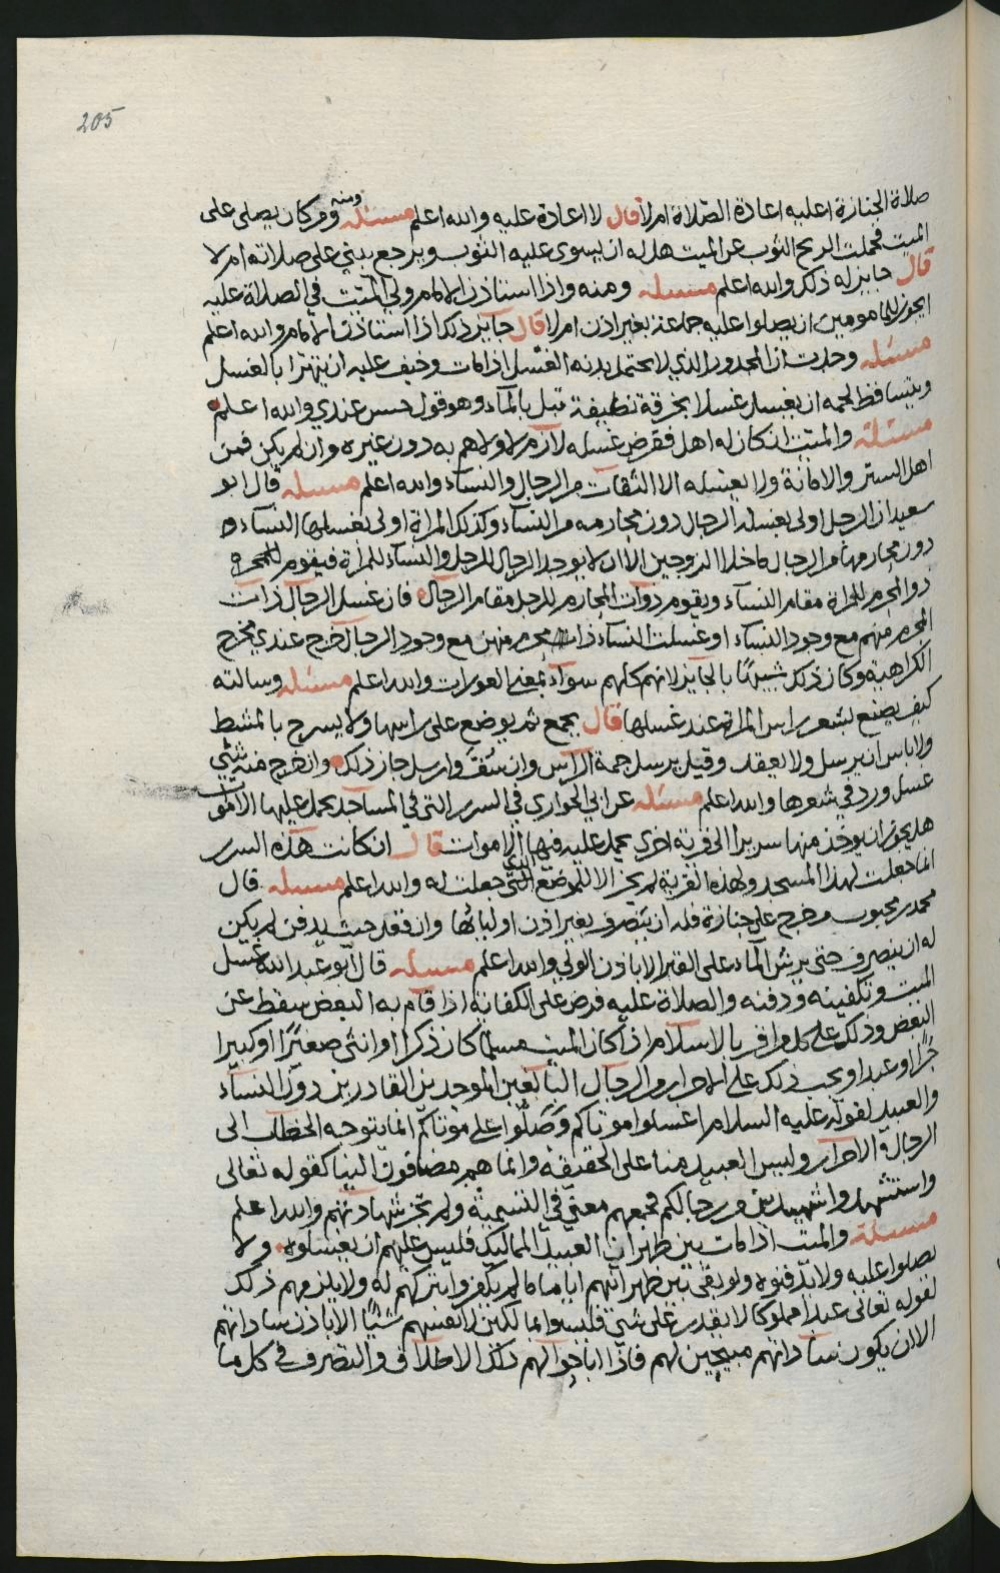 205
صلاة الجنازة اعليه اعادة الصلاة ام لا قال لا اعادة عليه والله اعلم مسئله ومنه ومن كان يصلى على
الميت فحملت الريح الثوب عن الميت هل له ان يسوى عليه الثوب ويرجع يبني على صلاته ام لا
قال جايز له ذلك والله اعلم مسئله ومنه واذا استاذن الامام ولي الميت في الصلاة عليه
ايجوز للمامومين ان يصلوا عليه جماعة بغير اذن ام لا قال جايز ذلك اذا استاذن الامام والله اعلم
مسئله وجدت ان المجدور الذي لا يحتمل بدنه الغسل اذا مات وخيف عليه ان يتهرا بالغسل
ويتساقط لحمه ان يغسل غسلا بخرقة نظيفة تبل بالمآء وهو قول حسن عندي والله اعلم
مسئلة والميت ان كان له اهل ففرض غسله لازم لاولاهم به دون غيره وان لم يكن فمن
اهل الستر والامانة ولا يغسله الا الثقات من الرجال والنسآء والله اعلم مسئله قال ابو
سعيد ان الرجل اولى بغسله الرجال دون محارمه من النسآء وكذلك المراة اولى بغسلها النسآء و
دون محارمها من الرجال ما خلا الزوجين الا ان لا يوجد الرجال للرجل والنسآء للمراة فيقوم
ذوا المحرم للمراة مقام النسآء ويقوم ذوات المحارم للرجل مقام الرجال فان غسل الرجال ذات
المحرم منهم مع وجود النسآء او غسلت النسآء ذا محرم منهن مع وجود الرجال خرج عندي مخرج
الكراهية وكان ذلك شبيهًا بالجايز لانهم كلهم سوآء بمعنى العورات والله اعلم مسئله وسالته
كيف يصنع بشعر راس المراة عند غسلها قال يجمع ثم يوضع على راسها ولا يسرح بالمشط
ولا باس ان يرسل ولا يعقد وقيل يرسل جمة الراس وان شق وارسل جاز ذلك وان خرج منه شي
غسل ورد في شعرها والله اعلم مسئله عن ابي الحواري في السرر التي في المساجد يحمل عليها الاموات
هل يجوز ان يوخذ منها سريرا الى قرية اخرى يحمل عليه فيها الاموات قال ان كانت هذه السرر
انما جعلت لهذا المسجد ولهذه القرية لم يجز الا للموضع الذي جعلت له والله اعلم مسئله قال
محمد بن محبوب من خرج على جنازة فله ان يتصرف بغير اذن اوليائها وان قعد حتى يدفن لم يكن
له ان ينصرف حتى يرش المآء على القبر الا باذن الولي والله اعلم مسئله قال ابو عبد الله غسل
الميت وتكفينه ودفنه والصلاة عليه فرض على الكفاية اذا قام به البعض سقط عن
البعض وذلك على كل من اقر بالاسلام اذا كان الميت مسلما كان ذكرا او انثى صغيرًا او كبيرا
حرًا او عبدا ويجب ذلك على الاحرار من الرجال البالغين الموحدين القادرين دون النسآء
والعبيد لقوله عليه السلام اغسلوا موتاكم وصلّوا على موتاكم انما يتوجه الخطاب الى
الرجال الاحرار وليس العبيد منا على الحقيقة وانما هم مضافون الينا كقوله تعالى
واستشهدوا شهيدين من رجالكم فجمعهم معنىً في التسمية ولم تجز شهادتهم والله اعلم
مسئلة والميت اذا مات بين ظهراني العبيد المماليك فليس عليهم ان يغسلوه ولا
يصلوا عليه ولا يدفنوه ولو بقي بين ظهرانيهم اياما ما لم يكفروا بتركهم له ولا يلزمهم ذلك
لقوله تعالى عبدا مملوكا لا يقدر على شي فليسوا بمالكين لانفسهم شيًا الا باذن ساداتهم
الا ان يكون ساداتهم مبيحين لهم فاذا اباحوا لهم ذلك الاطلاق والتصرف في كل ما